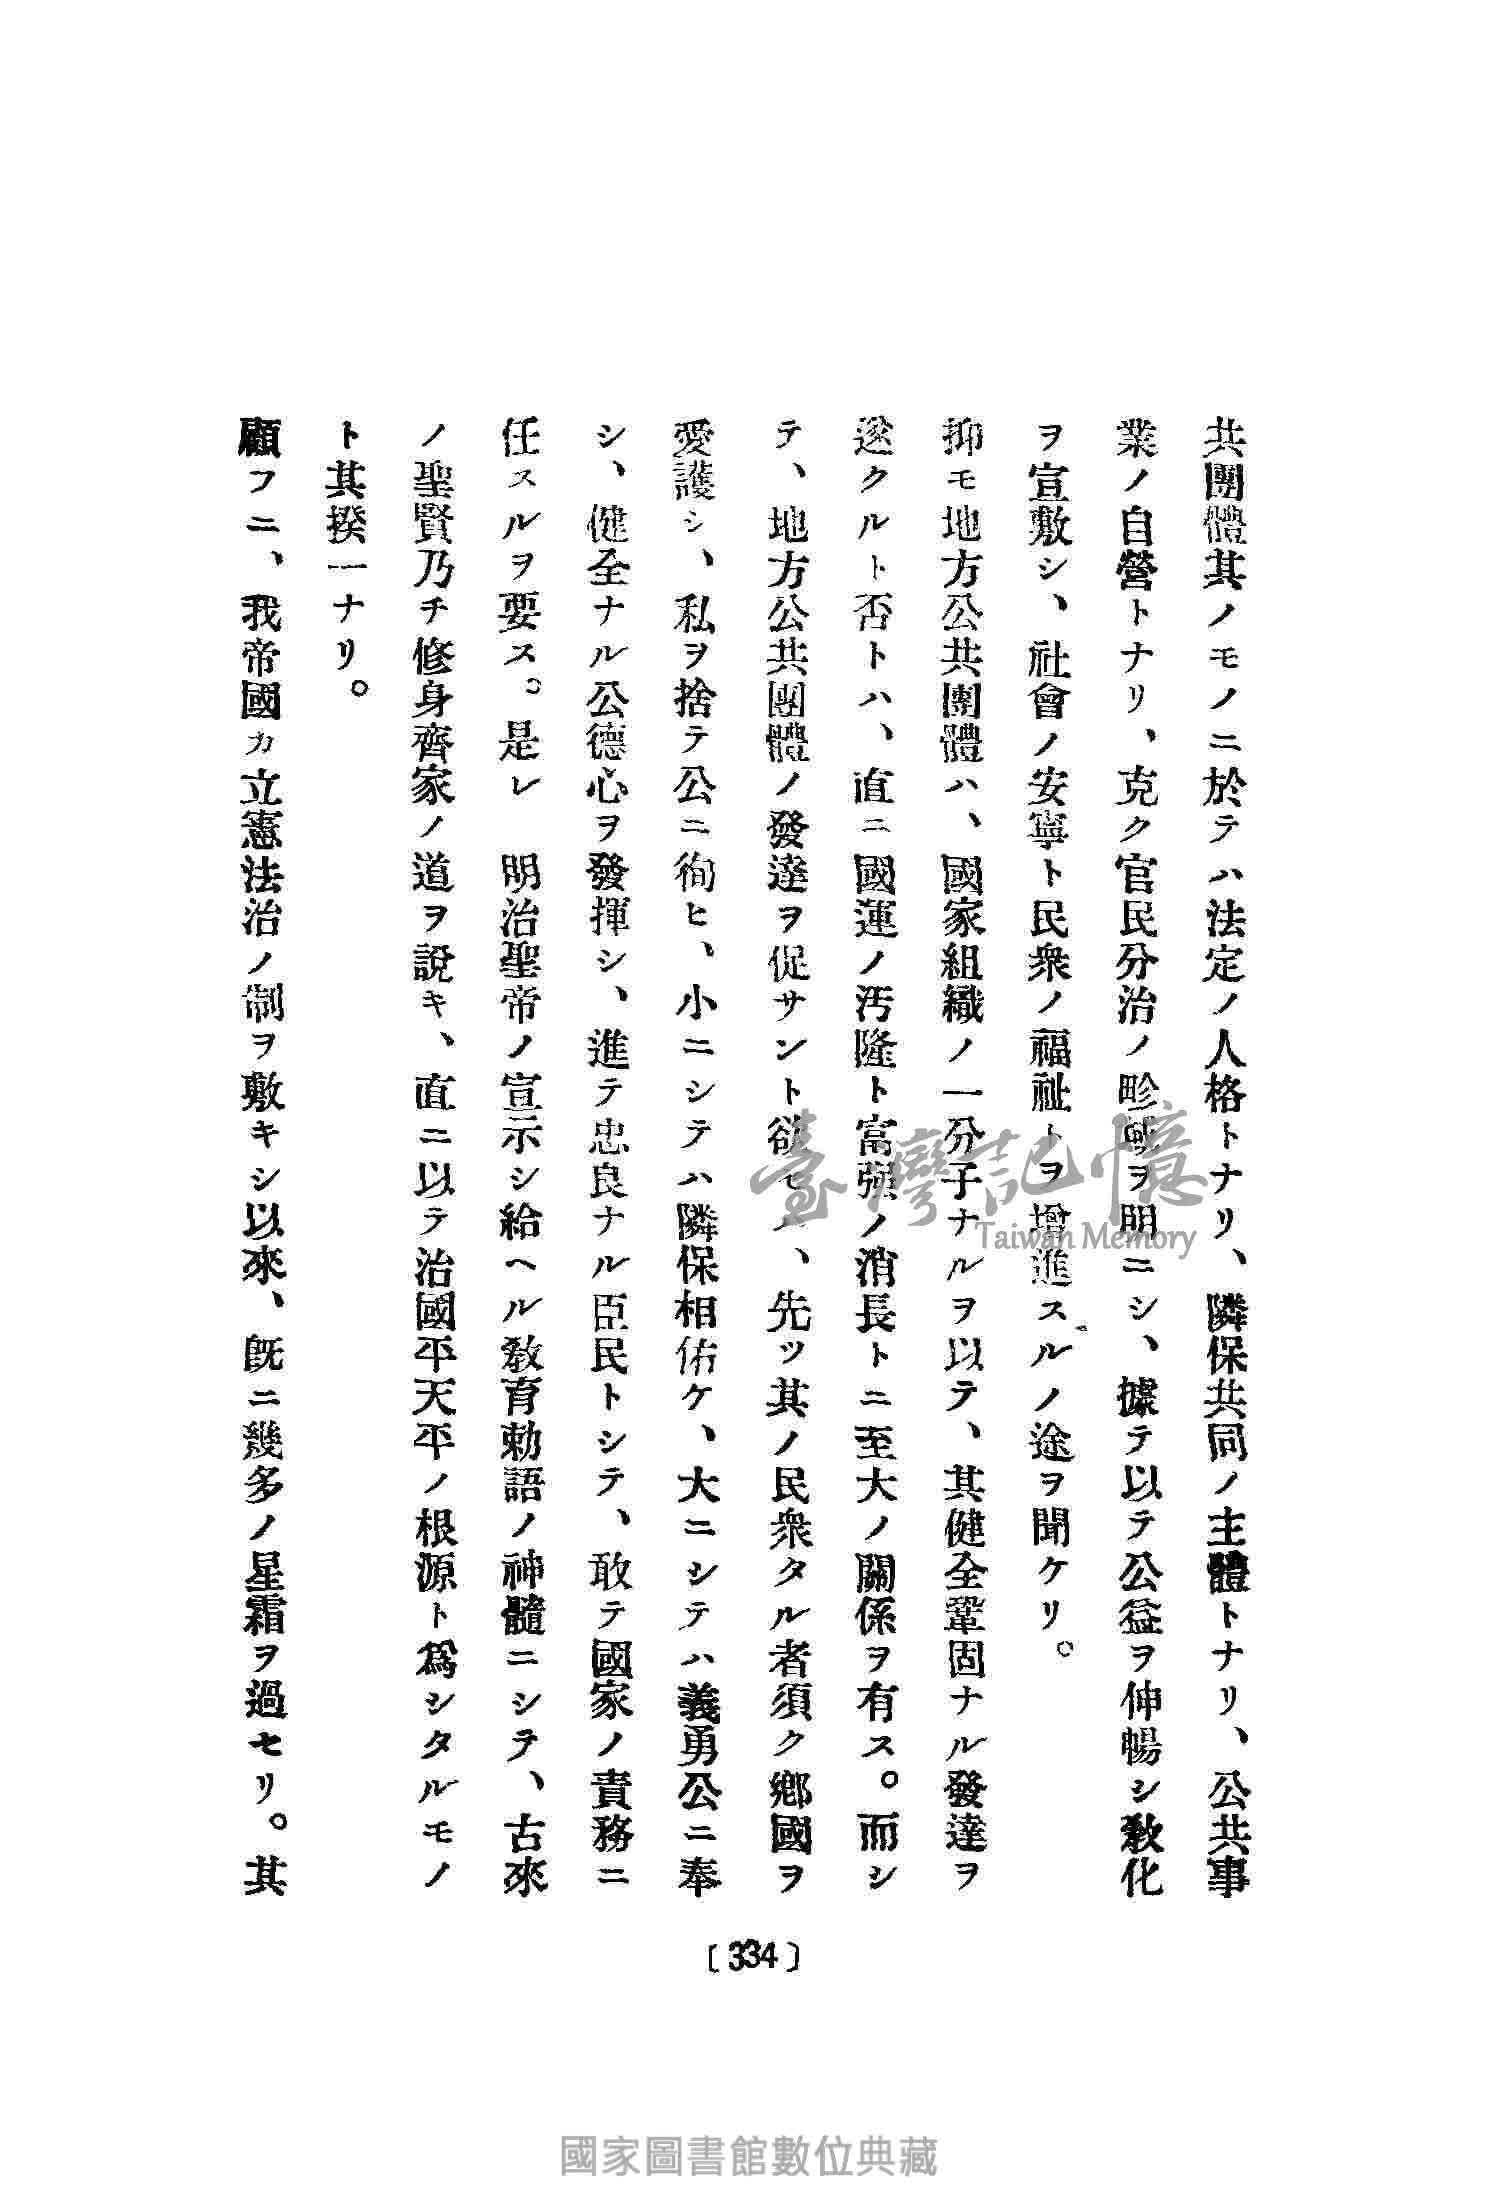 共團體其ノモノニ於テハ法定ノ人格トナリ、隣保共同ノ主體トナリ、公共事
業ノ自營トナリ、克ク官民分治ノ畛域ヲ明ニシ、據テ以テ公益ヲ伸暢シ敎化
ヲ宣敷シ、社會ノ安寧ト民衆ノ福祉トヲ增進スルノ途ヲ聞ケリ。
抑モ地方公共團體ハ、國家組織ノ一分子ナルヲ以テ、其健全鞏固ナル發達ヲ
遂クルト否トハ、直ニ國運ノ汚隆ト富强ノ消長トニ至大ノ關係ヲ有ス。而シ
テ、地方公共團體ノ發達ヲ促サント欲セハ、先ツ其ノ民衆タル者須ク鄕國ヲ
愛護シ、私ヲ捨テ公ニ徇ヒ、小ニシテハ隣保相佑ケ、大ニシテハ義勇公ニ奉
シ、健全ナル公德心ヲ發揮シ、進テ忠良ナル臣民トシテ、敢テ國家ノ責務ニ
任スルヲ要ス。是レ 明治聖帝ノ宣示シ給ヘル敎育勅語ノ神髓ニシテ、古來
ノ聖賢乃チ修身齊家ノ道ヲ說キ、直ニ以テ治國平天平ノ根源ト爲シタルモノ
ト其揆一ナリ。
顧フニ、我帝國カ立憲法治ノ制ヲ敷キシ以來、旣ニ幾多ノ星霜ヲ過セリ。其
〔334〕
臺灣記憶
Taiwan Memory
國家圖書館數位典藏